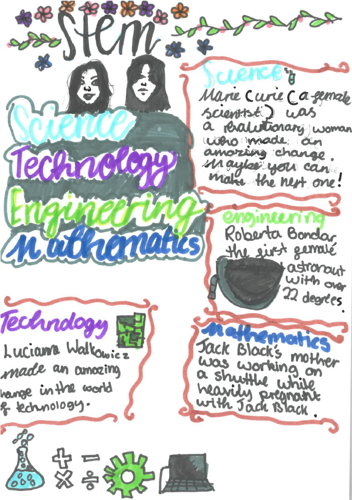 Stem
Science
Technology
Engineering
Mathematics
Science
Marie Curie (a female
scientist) was
a revolutionary woman
who made an
amazing change.
Maybe you can
make the next one!
engineering
Roberta Bondar
the first female
astronaut
with over
22 degrees.
Technology
Luciann Walkowicz
made an amazing
hange in the world
of technology.
Mathematics
Jack Black's mother
was working on
a shuttle while
heavily pregnant
with Jack Black.
+ -
× ÷